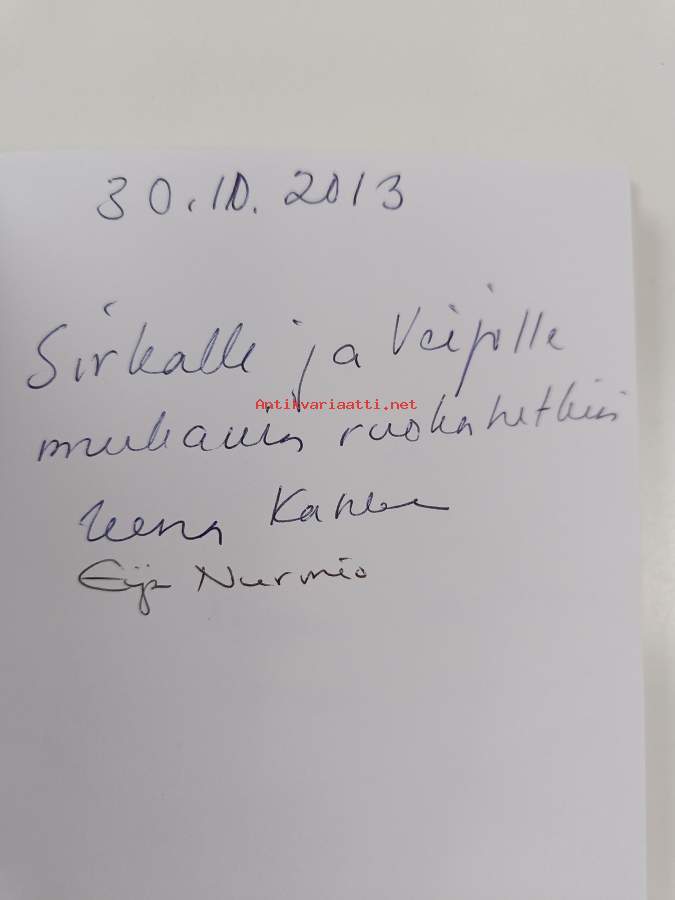 30.10.2013
Sirkalle ja Veijolle
Antikvariaatti.net
mukavia ruokahetkiä
Leena
Eija Nurmio